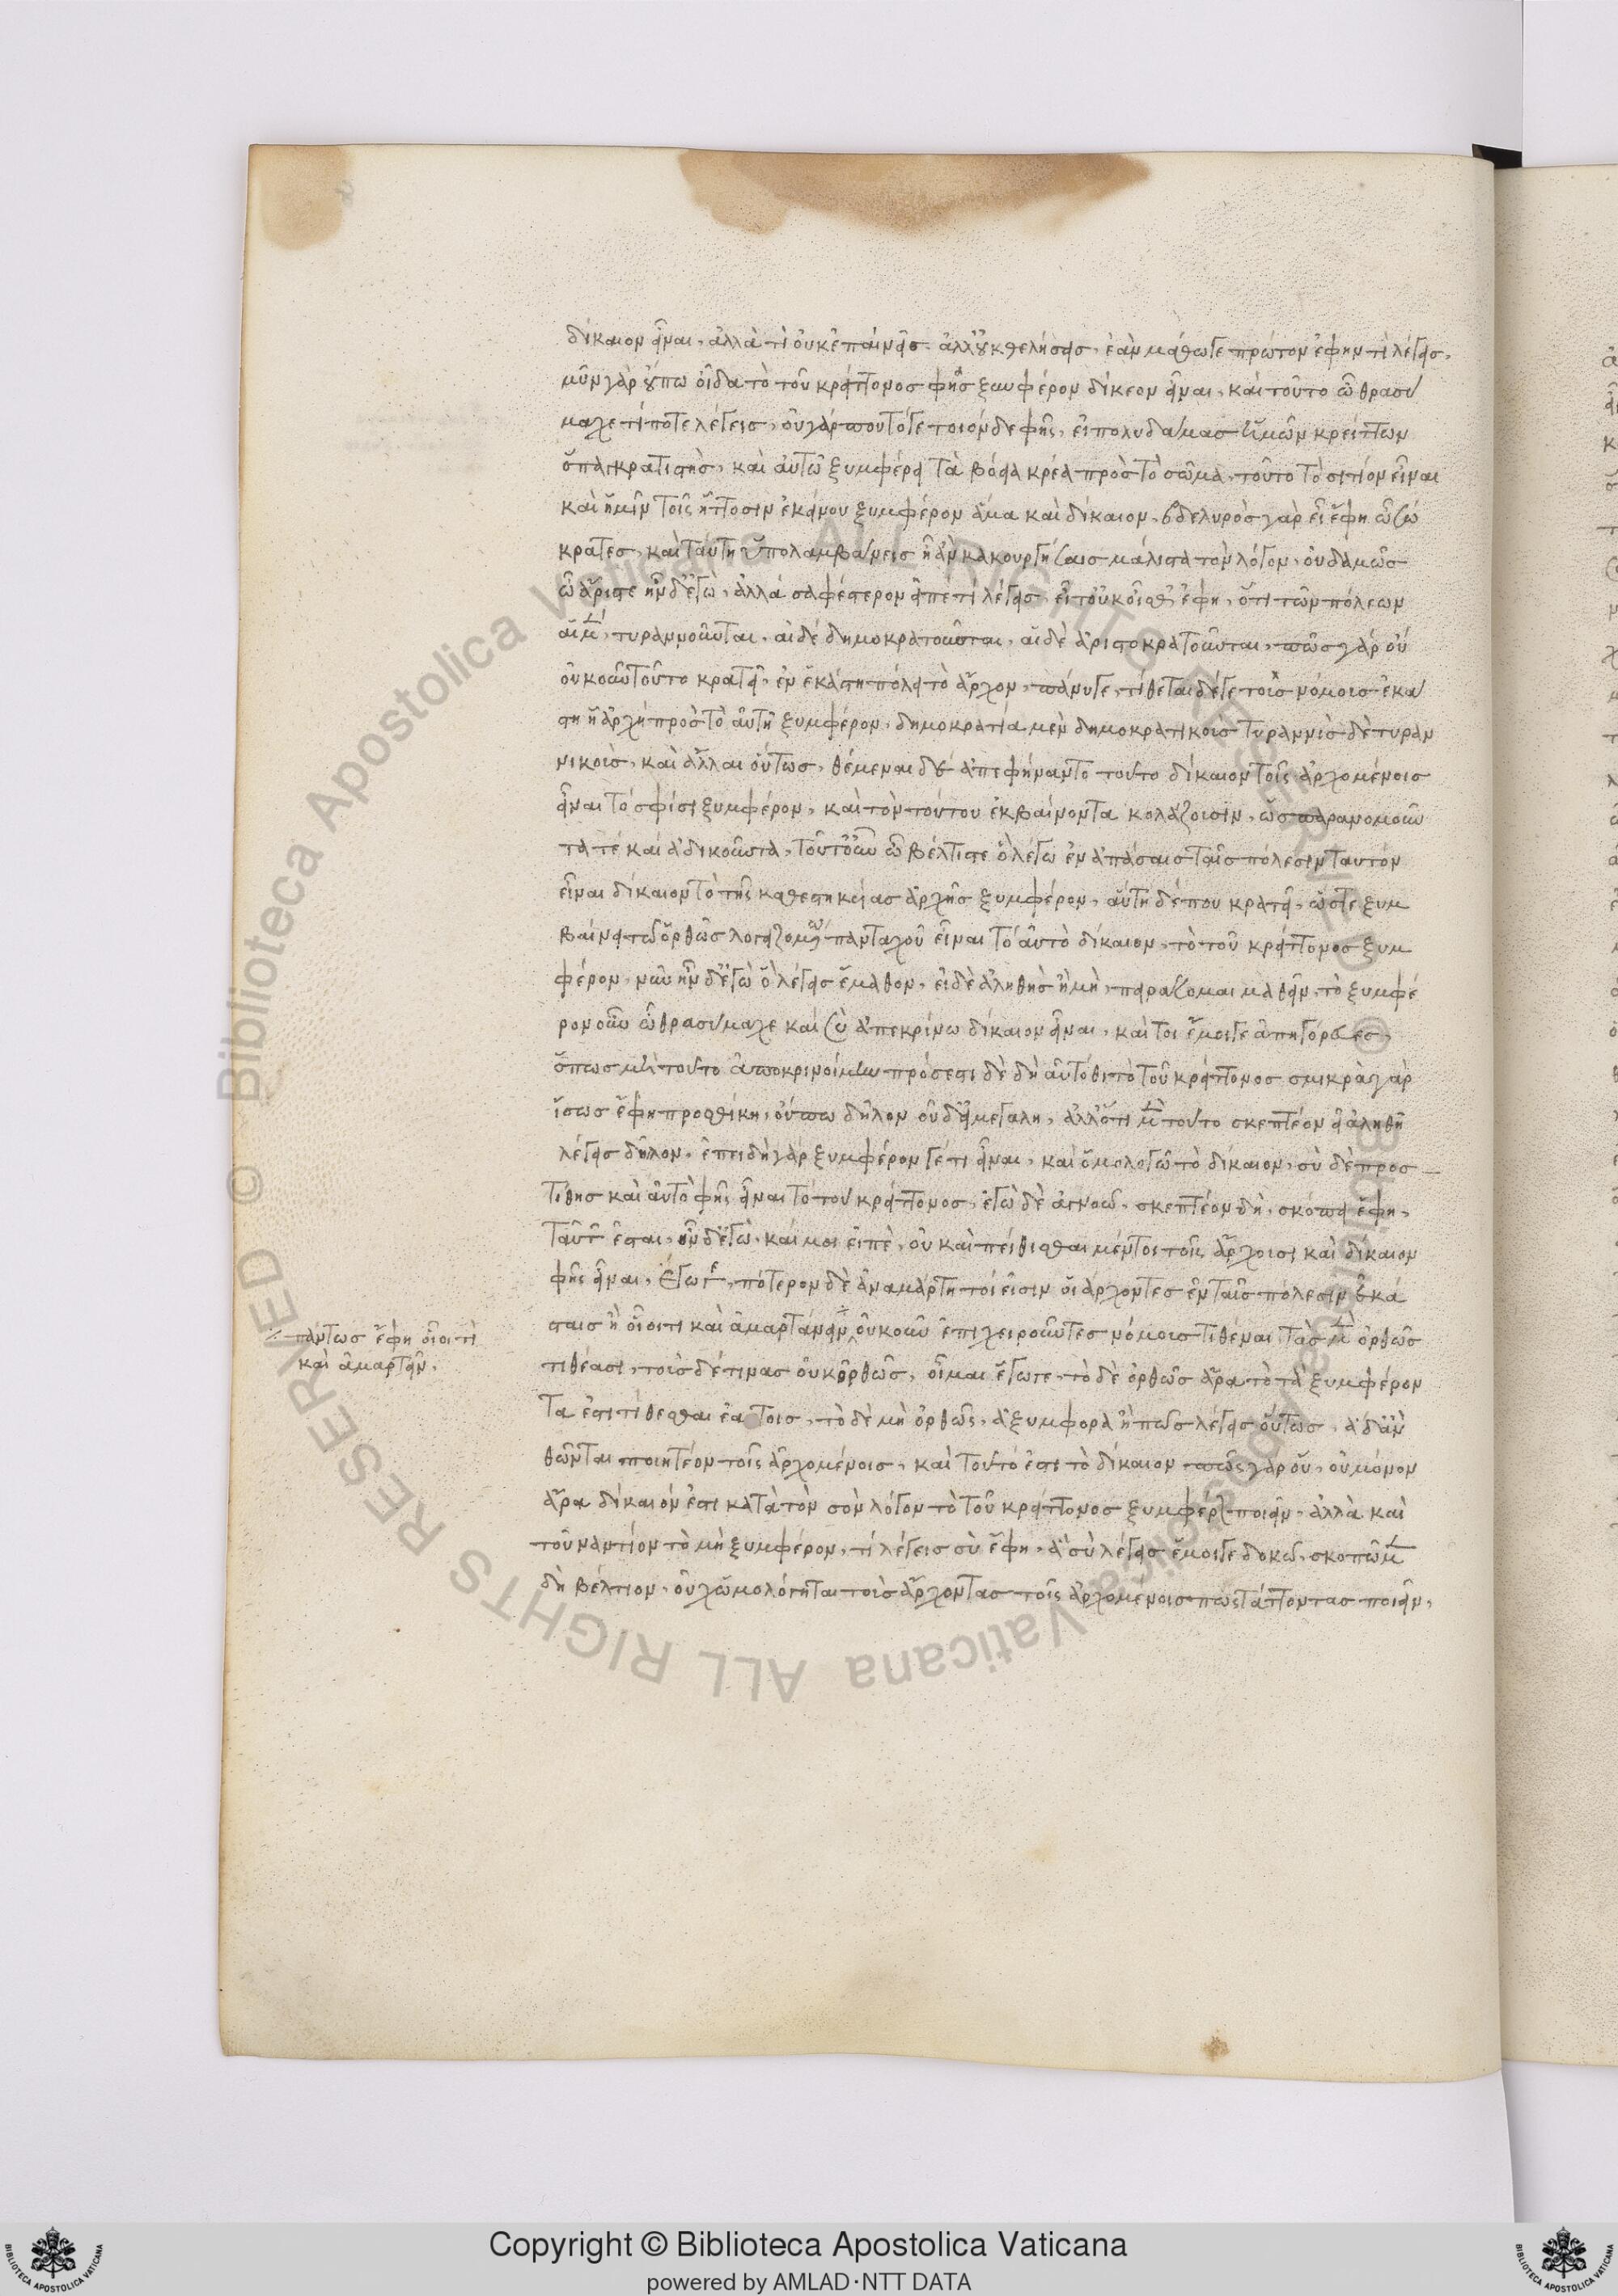 δίκαιον εἶναι, ἀλλὰ τί οὐκ ἐπαινεῖς. ἀλλ' οὐκ θελήσεις, ἐὰν μάθω γε πρῶτον ἔφην τί λέγεις,
νῦν γὰρ οὔπω οἶδα τὸ τοῦ κρείττονος φῂς ξυμφέρον δίκεον εἶναι, καὶ τοῦτο ὦ θρασύ
μαχε τί ποτε λέγεις, οὐ γάρ που τό γε τοιόνδε φῂς, εἰ πολυδάμας ἡμῶν κρείττων
ὁ παγκρατιστὴς, καὶ αὐτῷ ξυμφέρει τὰ βόεια κρέα πρὸς τὸ σῶμα, τοῦτο τὸ σιτίον εἶναι
καὶ ἡμῖν τοῖς ἥττοσιν ἐκείνου ξυμφέρον ἅμα καὶ δίκαιον, βδελυρὸς γὰρ εἶ ἔφη ὦ σώ
κρατες, καὶ ταύτῃ ὑπολαμβάνεις ᾗ ἂν κακουργήσαις μάλιστα τὸν λόγον, οὐδαμῶς
ὦ ἄριστε ἦν δ' ἐγὼ, ἀλλὰ σαφέστερον εἰπὲ τί λέγεις, εἶτ' οὐκ οἶσθ' ἔφη, ὅτι τῶν πόλεων
αἱ μὲν, τυραννοῦνται, αἱ δὲ δημοκρατοῦνται, αἱ δὲ ἀριστοκρατοῦνται, πῶς γὰρ οὐ
οὐκοῦν τοῦτο κρατεῖ, ἐν ἑκάστῃ πόλει τὸ ἄρχον, πάνυ γε, τίθεται δέ γε τοὺς νόμους ἑκά
στη ἡ ἀρχὴ πρὸς τὸ αὑτῇ ξυμφέρον, δημοκρατία μὲν δημοκρατικοὺς τυραννὶς δὲ τυραν
νικοὺς, καὶ ἄλλαι οὕτως, θέμεναι δὲ ἀπεφήναντο τοῦτο δίκαιον τοῖς ἀρχομένοις
εἶναι τὸ σφίσι ξυμφέρον, καὶ τὸν τούτου ἐκβαίνοντα κολάζουσιν, ὡς παρανομοῦν
τα τε καὶ ἀδικοῦντα, τοῦτ' οὖν ὦ βέλτιστε ὃ λέγω ἐν ἁπάσαις ταῖς πόλεσιν ταυτὸν
εἶναι δίκαιον τὸ τῆς καθεστηκυίας ἀρχῆς ξυμφέρον, αὕτη δέ που κρατεῖ, ὥστε ξυμ
βαίνει τῷ ὀρθῶς λογιζομένῳ πανταχοῦ εἶναι τὸ αὐτὸ δίκαιον, τὸ τοῦ κρείττονος ξυμ
φέρον, νῦν ἦν δ' ἐγὼ ὃ λέγεις ἔμαθον, εἰ δὲ ἀληθὲς ἢ μὴ, πειράσομαι μαθεῖν, τὸ ξυμφέ
ρον οὖν ὦ θρασύμαχε καὶ σὺ ἀπεκρίνω δίκαιον εἶναι, καὶ τοι ἔμοιγε ἀπηγόρευες,
ὅπως μὴ τοῦτο ἀποκρινοίμην πρόσεστι δὲ δὴ αὐτόθι τὸ τοῦ κρείττονος σμικρὰ γὰρ
ἴσως ἔφη προσθήκη, οὔπω δῆλον οὐδ' εἰ μεγάλη, ἀλλ' ὅτι μὲν τοῦτο σκεπτέον εἰ ἀληθῆ
λέγεις δῆλον, ἐπειδὴ γὰρ ξυμφέρον γέ τι εἶναι, καὶ ὁμολογῶ τὸ δίκαιον, σὺ δὲ προς
τίθης καὶ αὐτὸ φῂς εἶναι τὸ τοῦ κρείττονος, ἐγὼ δὲ ἀγνοῶ, σκεπτέον δὴ, σκόπει ἔφη,
ταῦτ' ἔσται, ἦν δ' ἐγὼ, καί μοι εἰπὲ, οὐ καὶ πείθεσθαι μέντοι τοῖς ἄρχουσι καὶ δίκαιον
φῂς εἶναι, ἔγωγε, πότερον δὲ ἀναμάρτητοί εἰσιν οἱ ἄρχοντες ἐν ταῖς πόλεσιν ἑκά
σταις ἢ οἷοί τι καὶ ἁμαρτάνειν οὐκοῦν ἐπιχειροῦντες νόμους τιθέναι τοὺς μὲν ὀρθῶς
⁒ πάντως ἔφη οἷοί τι
καὶ ἁμαρτεῖν,
τιθέασι, τοὺς δέ τινας οὐκ ὀρθῶς, οἶμαι ἔγωγε, τὸ δὲ ὀρθῶς ἆρα τὸ τὰ ξυμφέρον
τα ἐστι τίθεσθαι ἑαυτοῖς, τὸ δὲ μὴ ὀρθῶς, ἀξύμφορα ἢ πῶς λέγεις οὕτως, ἃ δ' ἂν
θῶνται ποιητέον τοῖς ἀρχομένοις, καὶ τοῦτό ἐστι τὸ δίκαιον πῶς γὰρ οὔ, οὐ μόνον
ἄρα δίκαιόν ἐστι κατὰ τὸν σὸν λόγον τὸ τοῦ κρείττονος ξυμφέρον ποιεῖν, ἀλλὰ καὶ
τοὐναντίον τὸ μὴ ξυμφέρον, τί λέγεις σὺ ἔφη, ἃ σὺ λέγεις ἔμοιγε δοκῶ, σκοπῶμεν
δὴ βέλτιον, οὐχ ὡμολόγηται τοὺς ἄρχοντας τοῖς ἀρχομένοις προστάττοντας ποιεῖν,
Copyright © Biblioteca Apostolica Vaticana
powered by AMLAD·NTT DATA